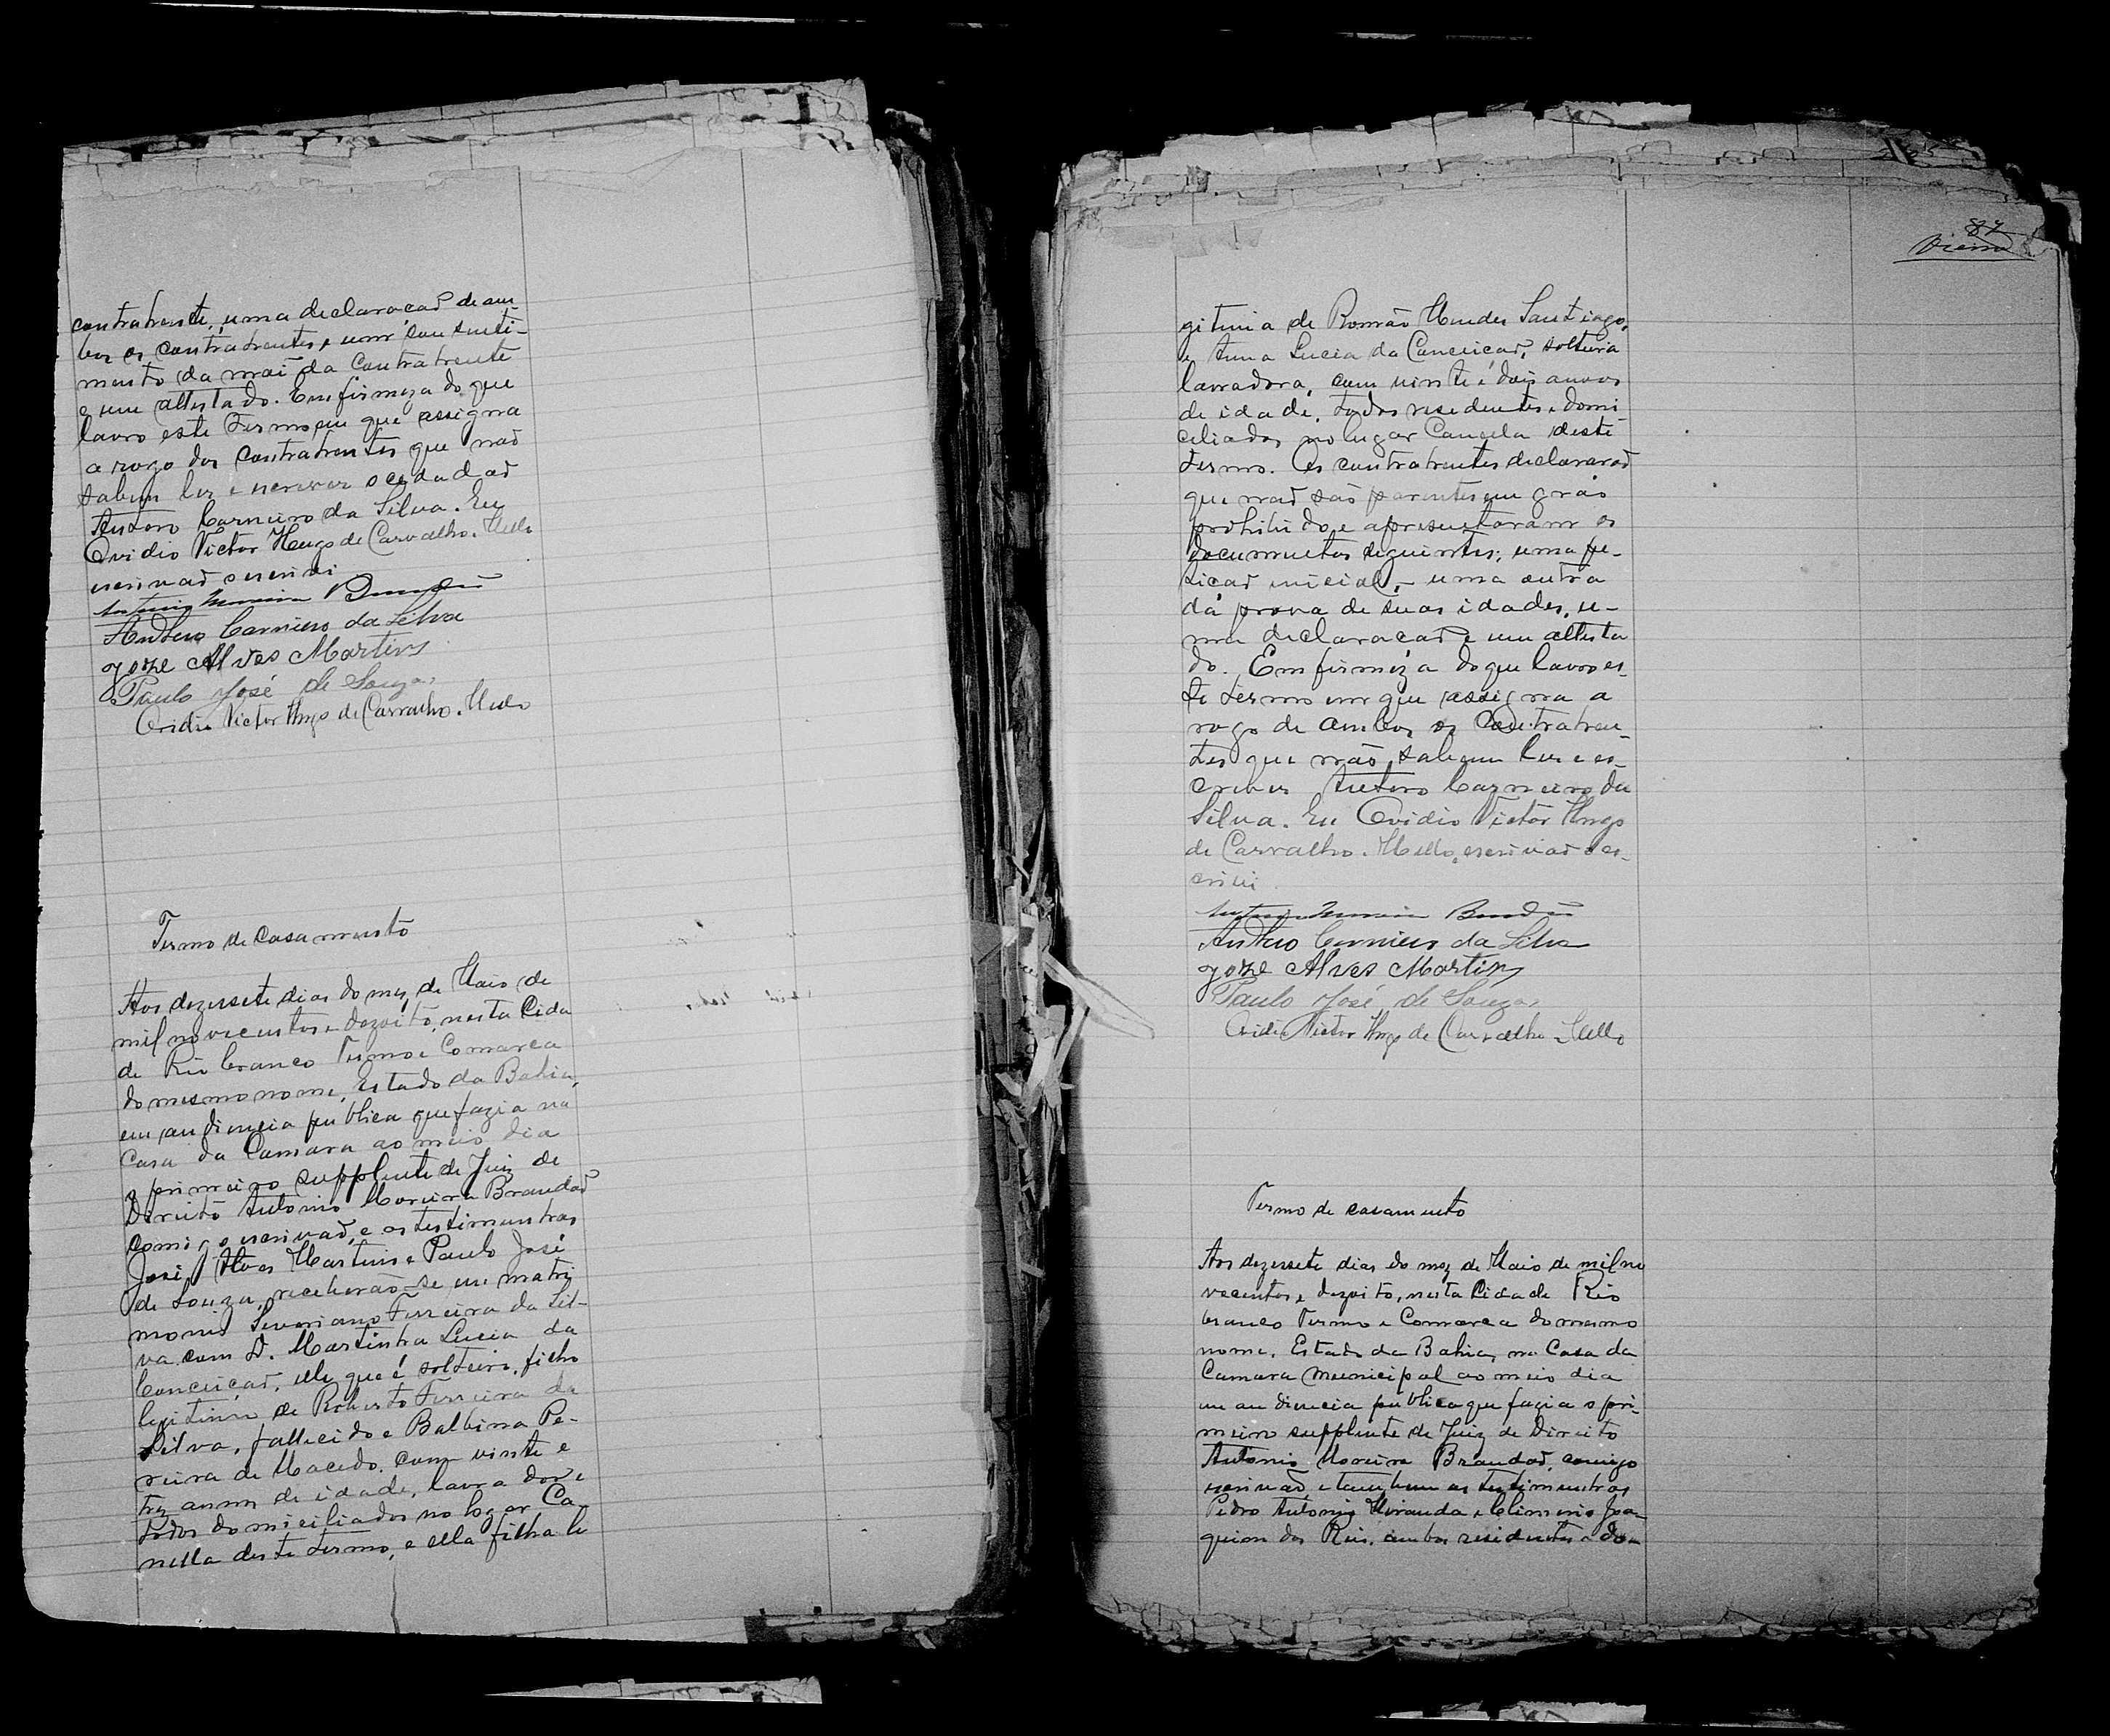 contratrente, uma declaracaõ de am
bos os contratrentes e um consenti-
mento da mãi da contratrente
e um attestado. Em firmeza do que
lavro este Termo em que assigna
a rogo dos contratrentes que naõ
sabem ler e escrever o cidadaõ
Antero Carneiro da Silva. Eu
Ovidio Victor Hugo de Carvalho. Mello
escrivaõ o escrevi
Antonio Moreira Brandão
Antero Carneiro da Silva
Joze Alves Martins
Paulo José de Souza
Ovidio Victor Hugo de Carvalho. Mello
Termo de casamento
Aos dezessete dias do mez de Maio de
mil novecentos e dezoito, nesta Cida
de Rio branco Termo e Comarca
do mesmo nome, Estado da Bahia,
em audiencia publica que fazia na
Casa da Camara ao meio dia
o primeiro supplente de Juiz de
Direito Antonio Moreira Brandaõ
comigo escrivaõ, e as testimunhas
José Alves Martins e Paulo José
de Souza, receberão-se em matri
monio Severiano Ferreira da Sil-
va com D. Martinha Lucia da
Conceiçaõ, elle que é solteiro, filho
legitimo de Roberto Ferreira da
Silva, fallecido e Balbina Pe-
reira de Macedo, com vinte e
trez annos de idade, lavrador e
todos domiciliados no logar Ca
nella deste termo, e ella filha le
87
Vieira
gitima de Romão Mendes Santiago,
e Anna Lucia da Conceicaõ, solteira
lavradora, com vinte e dois annos
de idade, todos residentes e domi-
ciliados no lugar Canella deste
termo. Os contratrentes declararaõ
que naõ são parentes em gráo
prohibido e apresentaram os
documentos seguintes; uma pe-
ticaõ inicial, - uma outra
da prova de suas idades, u-
ma declaracaõ e um attesta
do. Em firmeza do que lavro es-
te termo em que assigna a
rogo de ambos os contratren-
tes que não sabem ler e es-
crever Antero Carneiro da
Silva. Eu Ovidio Victor Hugo
de Carvalho. Mello, escrivaõ o es-
crevi
Antonio Moreira Brandão
Antero Carneiro da Silva
Joze Alves Martins
Paulo José de Souza
Ovidio Victor Hugo de Carvalho. Mello
Termo de casamento
Aos dezessete dias do mez de Maio de mil no
vecentos e dezoito, nesta Cidade Rio
branco Termo e Comarca do mesmo
nome, Estado da Bahia, na Casa da
Camara Municipal ao meio dia
em audiencia publica que fazia o pri-
meiro supplente de Juiz de Direito
Antonio Moreira Brandaõ, comigo
escrivaõ, e tambem as testimunhas
Pedro Antonio Miranda e Climerio Joa-
quim dos Reis, ambos residentes e do-